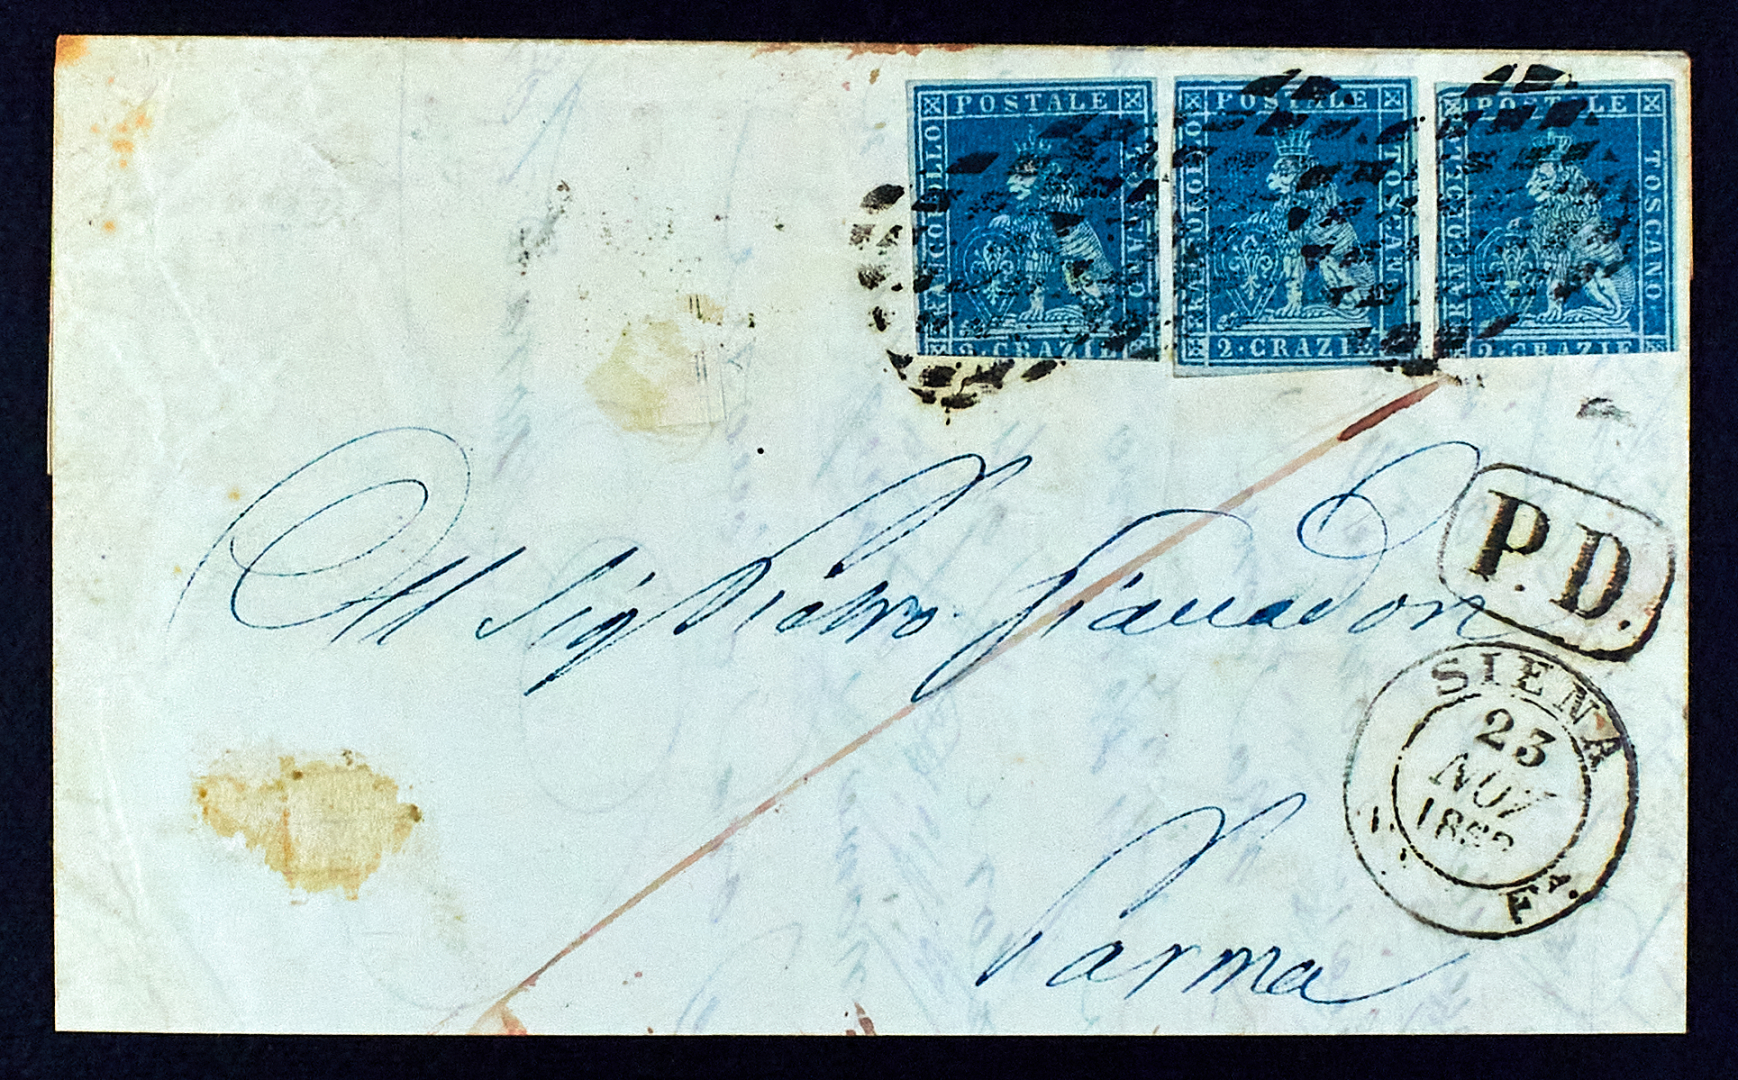 POSTALE
FRANCOBOLLO
TOSCANO
2·CRAZIE
POSTALE
FRANCOBOLLO
TOSCANO
2·CRAZIE
POSTALE
FRANCOBOLLO
TOSCANO
2·CRAZIE
P.D.
Al Sig Pietro Gianadon
SIENA
23
NOV
Parma